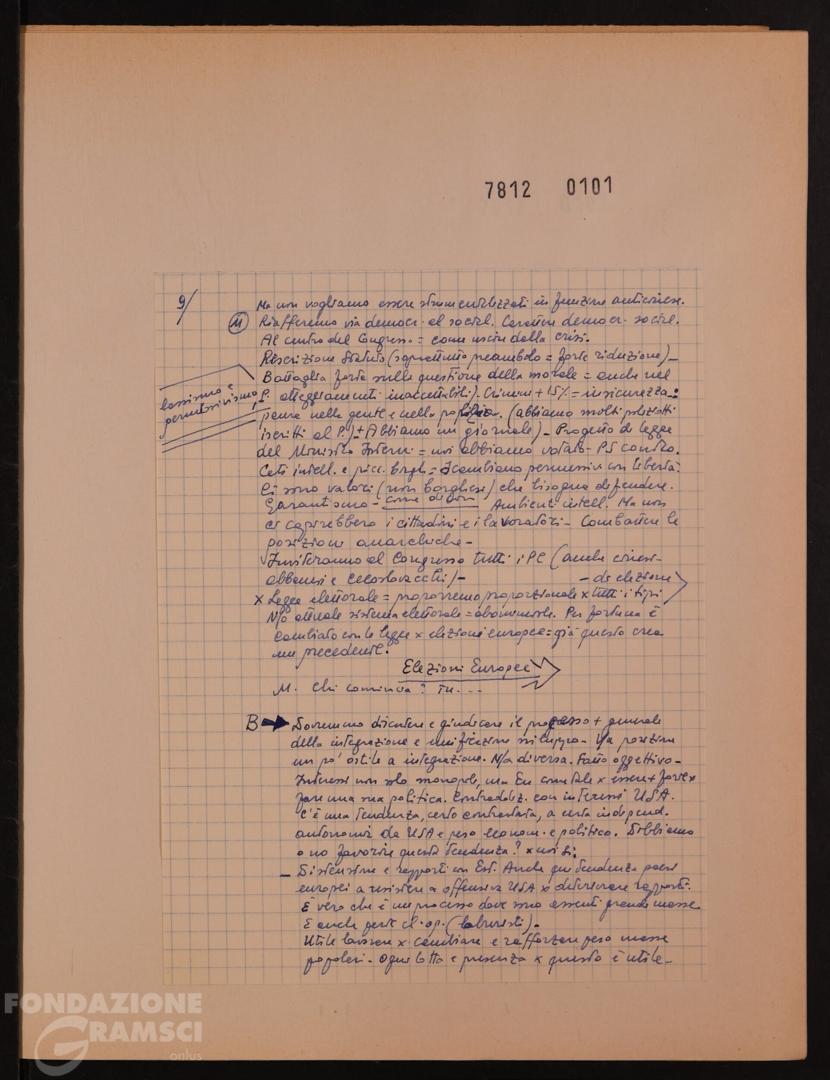 7812 0101
9/
Ma non vogliamo essere strumentalizzati in funzione anticinese.
(11) Riaffermo via democr. al social. Carattere democr. social.
Al centro del Congresso = come uscire dalla crisi.
Riscrizione Statuto (soprattutto preambolo = forte riduzione) -
Battaglia forte sulla questione della morale = anche nel
lassismo e
permissivismo
P. atteggiamenti inaccettabili. Crimini + 15% = insicurezza =
paura nella gente e nella polizia. (abbiamo molti poliziotti
iscritti al P.) + Abbiamo un giornale) - Progetto di legge
del Ministro Interni = noi abbiamo votato - PS contro.
Ceti intell. e picc. borgh. = scambiano permissiv. con libertà.
Ci sono valori (non borghesi) che bisogna difendere.
Garantismo - come dicon Ambienti intell. Ma non
ci capirebbero i cittadini e i lavoratori - Combattere le
posizioni anarchiche -
Inviteranno al Congresso tutti i PC (anche cinesi -
albanesi e cecoslovacchi) -
- di elezione
x Legge elettorale = proporremo proporzionale x tutti i tipi
N/o attuale sistema elettorale = abominevole. Per fortuna è
cambiato con la legge x elezioni europee = già questo crea
un precedente.
Elezioni Europee
M. Chi comincia? Tu...
B → Dovremmo discutere e giudicare il processo + generale
della integrazione e unificazione sviluppo - V/a posizione
un po' ostile a integrazione. N/a diversa. Fatto oggettivo -
Interessi non solo monopoli, ma Eu come tale x essere + forte x
fare una sua politica. Contraddiz. con interessi USA.
C'è una tendenza, certo contrastata, a certa independ.
autonomia da USA e peso econom. e politico. Dobbiamo
o no favorire questa tendenza? x noi sì.
- Distensione e rapporti con Est. Anche qui tendenza paesi
europei a resistere a offensiva USA x deteriorare rapporti.
È vero che è un processo dove sono assenti grandi masse
E anche parte cl. op. (laburisti) -
Utile lavorare x cambiare e rafforzare peso masse
popolari - Ogni lotta e presenza x questo è utile -
FONDAZIONE
GRAMSCI
onlus